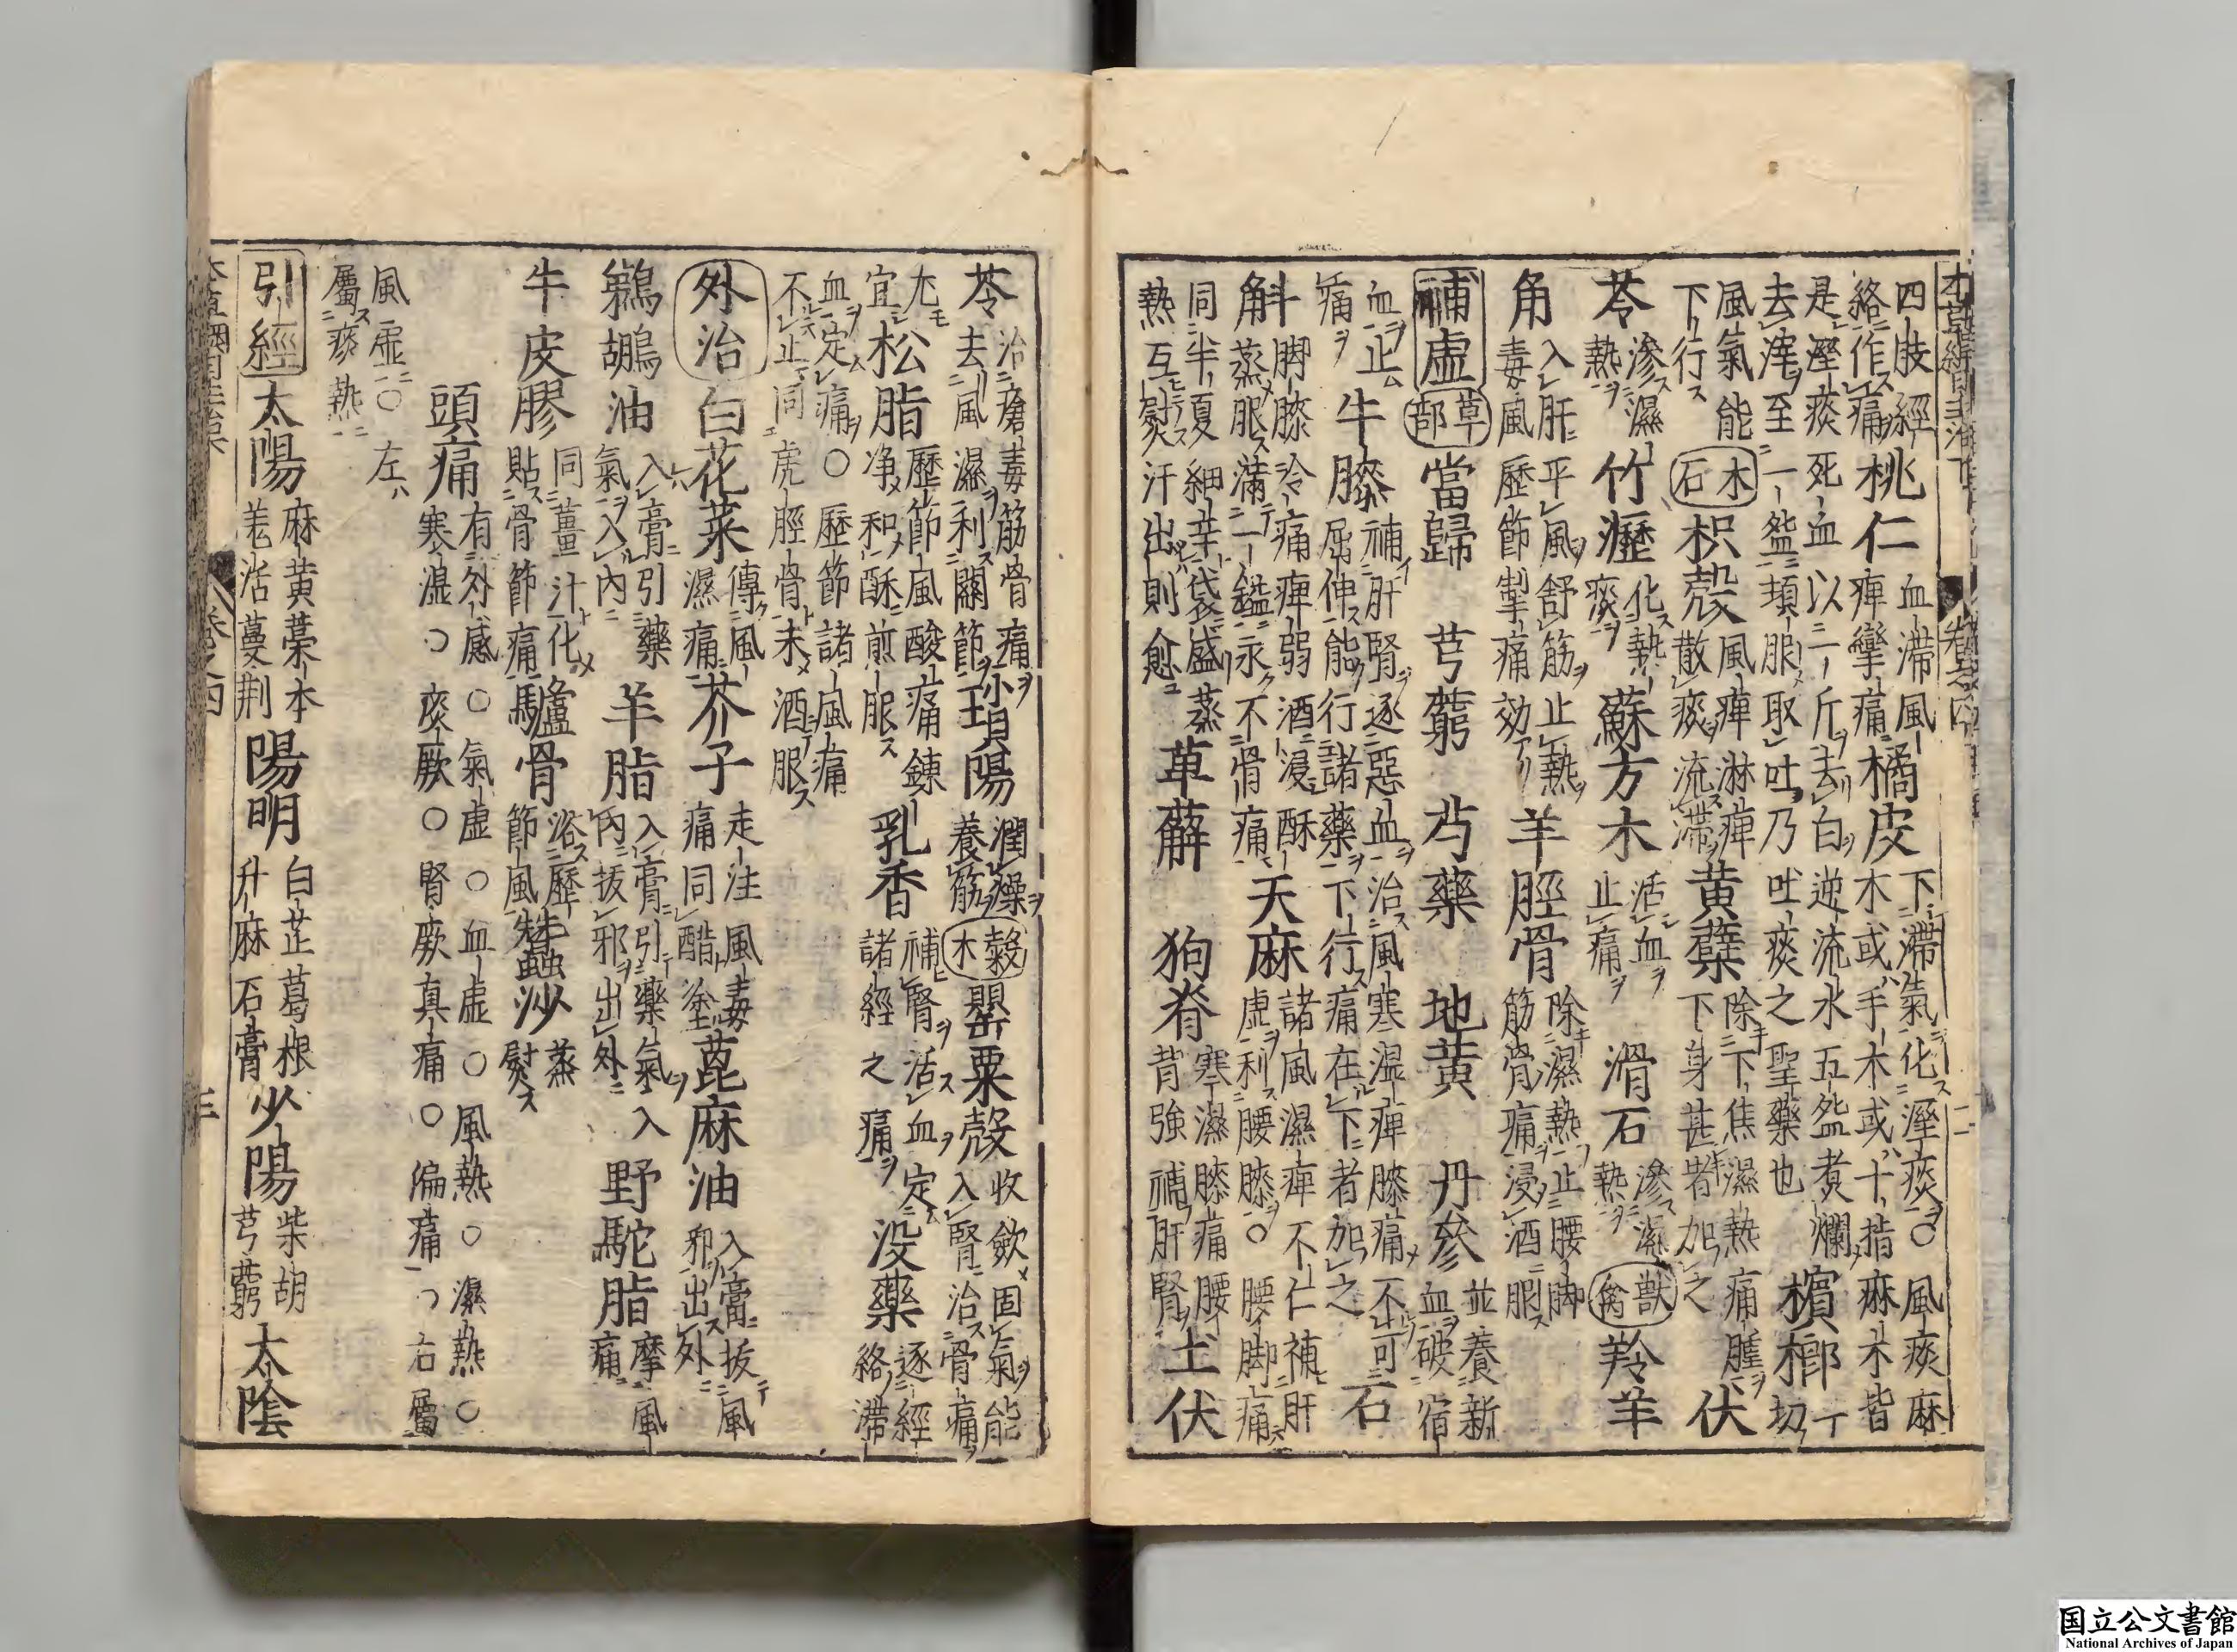 本草綱目主治下 卷之四 二
四肢經絡作痛桃仁血滯風痺攣痛橘皮下滯氣化溼痰○風痰麻木或手木或十指麻木皆
是溼痰死血以一斤去白逆流水五盌煮爛去滓至一盌頓服取吐乃吐痰之聖藥也檳榔一切
風氣能下行木石枳殼風痺淋痺散痰流滯黄蘗除下焦濕熱痛腫下身甚者加之伏
苓滲濕熱竹瀝化熱痰蘇方木活血止痛滑石滲濕熱獸禽羚羊
角入肝平風舒筋止熱毒風歷節掣痛効羊脛骨除濕熱止腰脚筋骨痛浸酒服
補虛草部當歸芎藭芍藥地黄丹參並養新血破宿
血止痛牛膝補肝腎逐惡血治風寒湿痺膝痛不可屈伸能行諸藥下行痛在下者加之石
斛脚膝冷痛痺弱酒浸酥蒸服滿一鎰永不骨痛天麻諸風濕痺不仁補肝虛利腰膝○腰脚痛
同半夏細辛袋盛蒸熱互熨汗出則愈萆薢狗脊寒濕膝痛腰背強補肝腎土伏
苓治瘡毒筋骨痛去風濕利關節瑣陽潤燥養筋穀木罌粟殼收斂固氣能入腎治骨痛
尤宜松脂歷節風酸痛錬净和酥煎服乳香補腎活血定諸經之痛没藥逐經絡滯
血定痛○歷節諸風痛不止同虎脛骨末酒服
外治白花菜傅風濕痛芥子走注風毒痛同醋塗蓖麻油入膏拔風邪出外
鵜鶘油入膏引藥氣入內羊脂入膏引藥氣入內拔邪出外野駝脂摩風痛
牛皮膠同薑汁化貼骨節痛驢骨浴歷節風蠶沙蒸熨
頭痛有外感○氣虛○血虛○風熱○濕熱○寒湿○痰厥○腎厥真痛○偏痛○右屬
風虛○左屬痰熱
引經太陽麻黄藁本羌活蔓荆陽明白芷葛根升麻石膏少陽柴胡芎藭太陰
本草綱目主治 卷之四 三
国立公文書館
National Archives of Japan